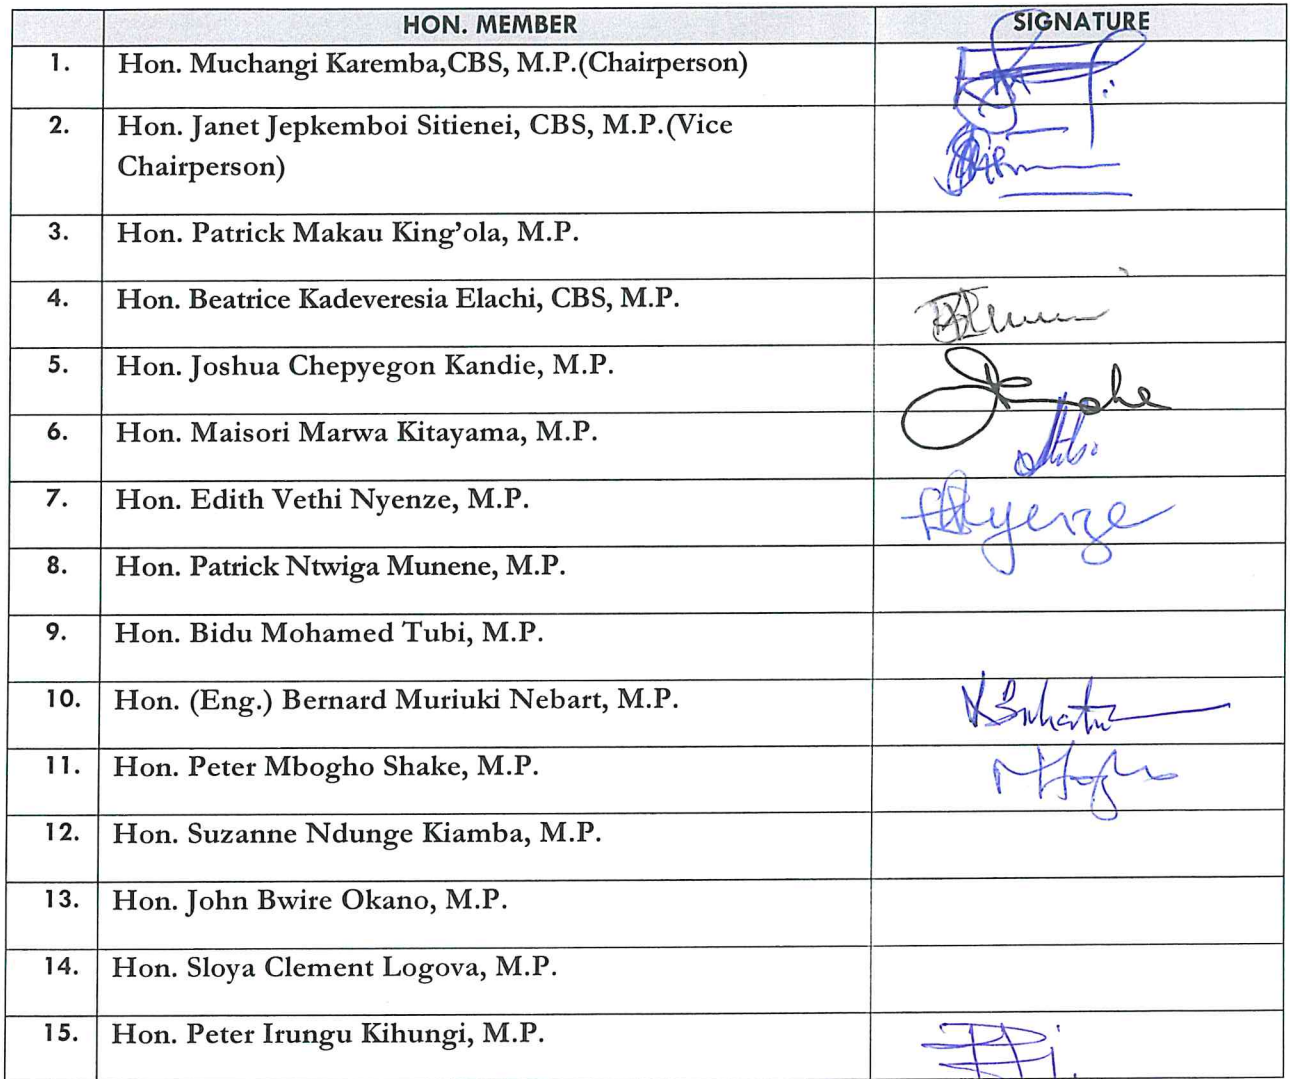 HON. MEMBER SIGNATURE
1. Hon. Muchangi Karemba,CBS, M.P.(Chairperson)
2. Hon. Janet Jepkemboi Sitienei, CBS, M.P.(Vice
Chairperson)
3. Hon. Patrick Makau King'ola, M.P.
4. Hon. Beatrice Kadeveresia Elachi, CBS, M.P.
5. Hon. Joshua Chepyegon Kandie, M.P.
6. Hon. Maisori Marwa Kitayama, M.P.
7. Hon. Edith Vethi Nyenze, M.P.
8. Hon. Patrick Ntwiga Munene, M.P.
9. Hon. Bidu Mohamed Tubi, M.P.
10. Hon. (Eng.) Bernard Muriuki Nebart, M.P.
11. Hon. Peter Mbogho Shake, M.P.
12. Hon. Suzanne Ndunge Kiamba, M.P.
13. Hon. John Bwire Okano, M.P.
14. Hon. Sloya Clement Logova, M.P.
15. Hon. Peter Irungu Kihungi, M.P.